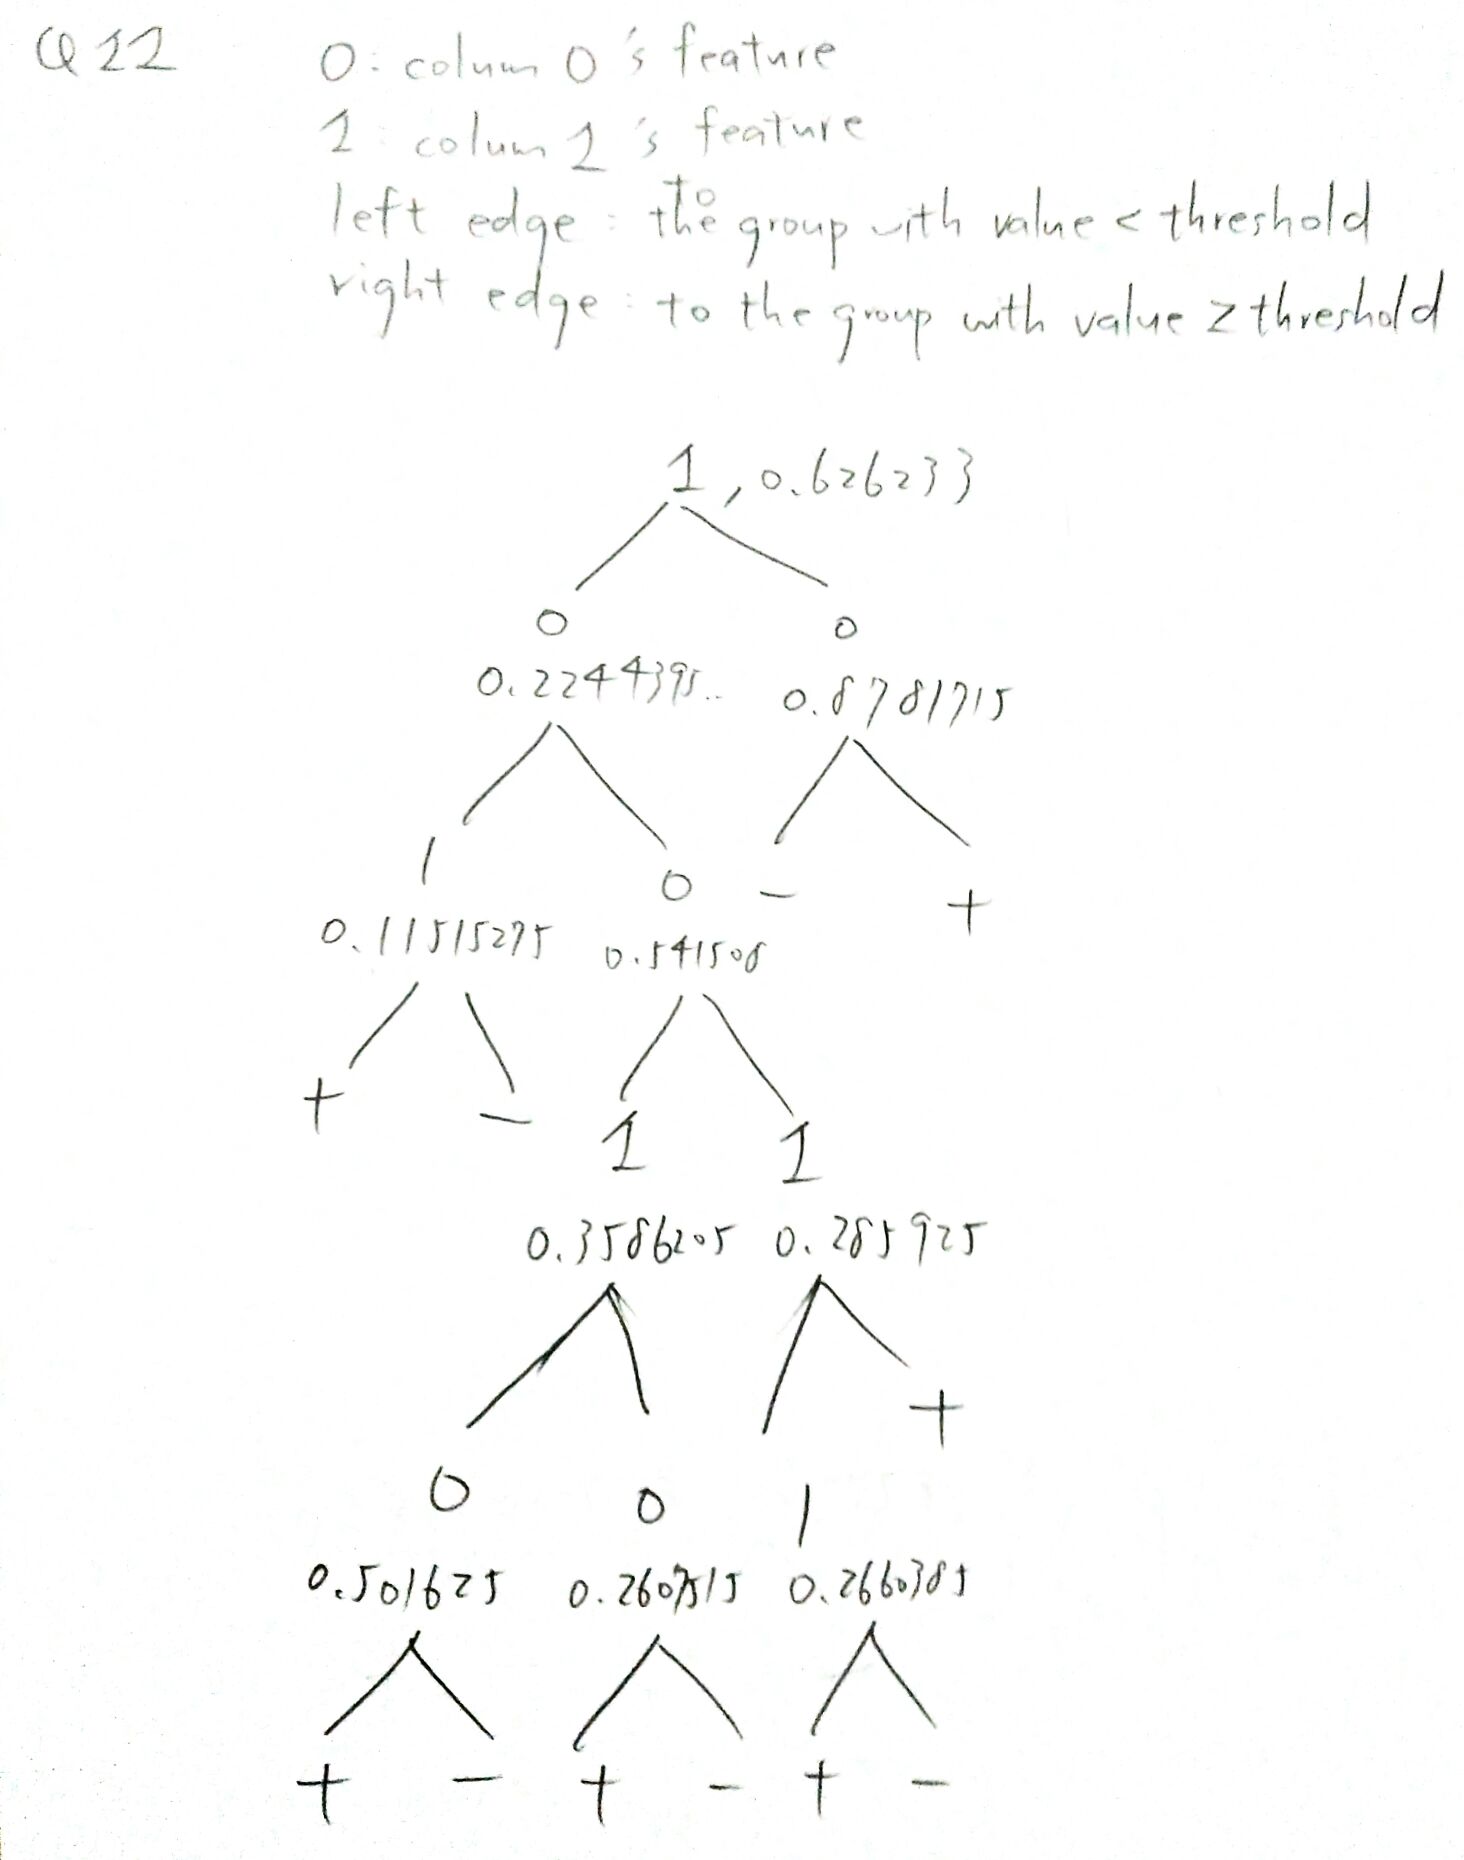 Q22
0: colunm 0's feature
1: colum 1's feature
left edge: to the group with value < threshold
right edge: to the group with value ≥ threshold
1, 0.626233
0 0
0.2244395.. 0.8781715
1 0 - +
0.11515275 0.541508
+ - 1 1
0.3586205 0.285925
+
0 0 1
0.501625 0.2660385
+ - + - + -